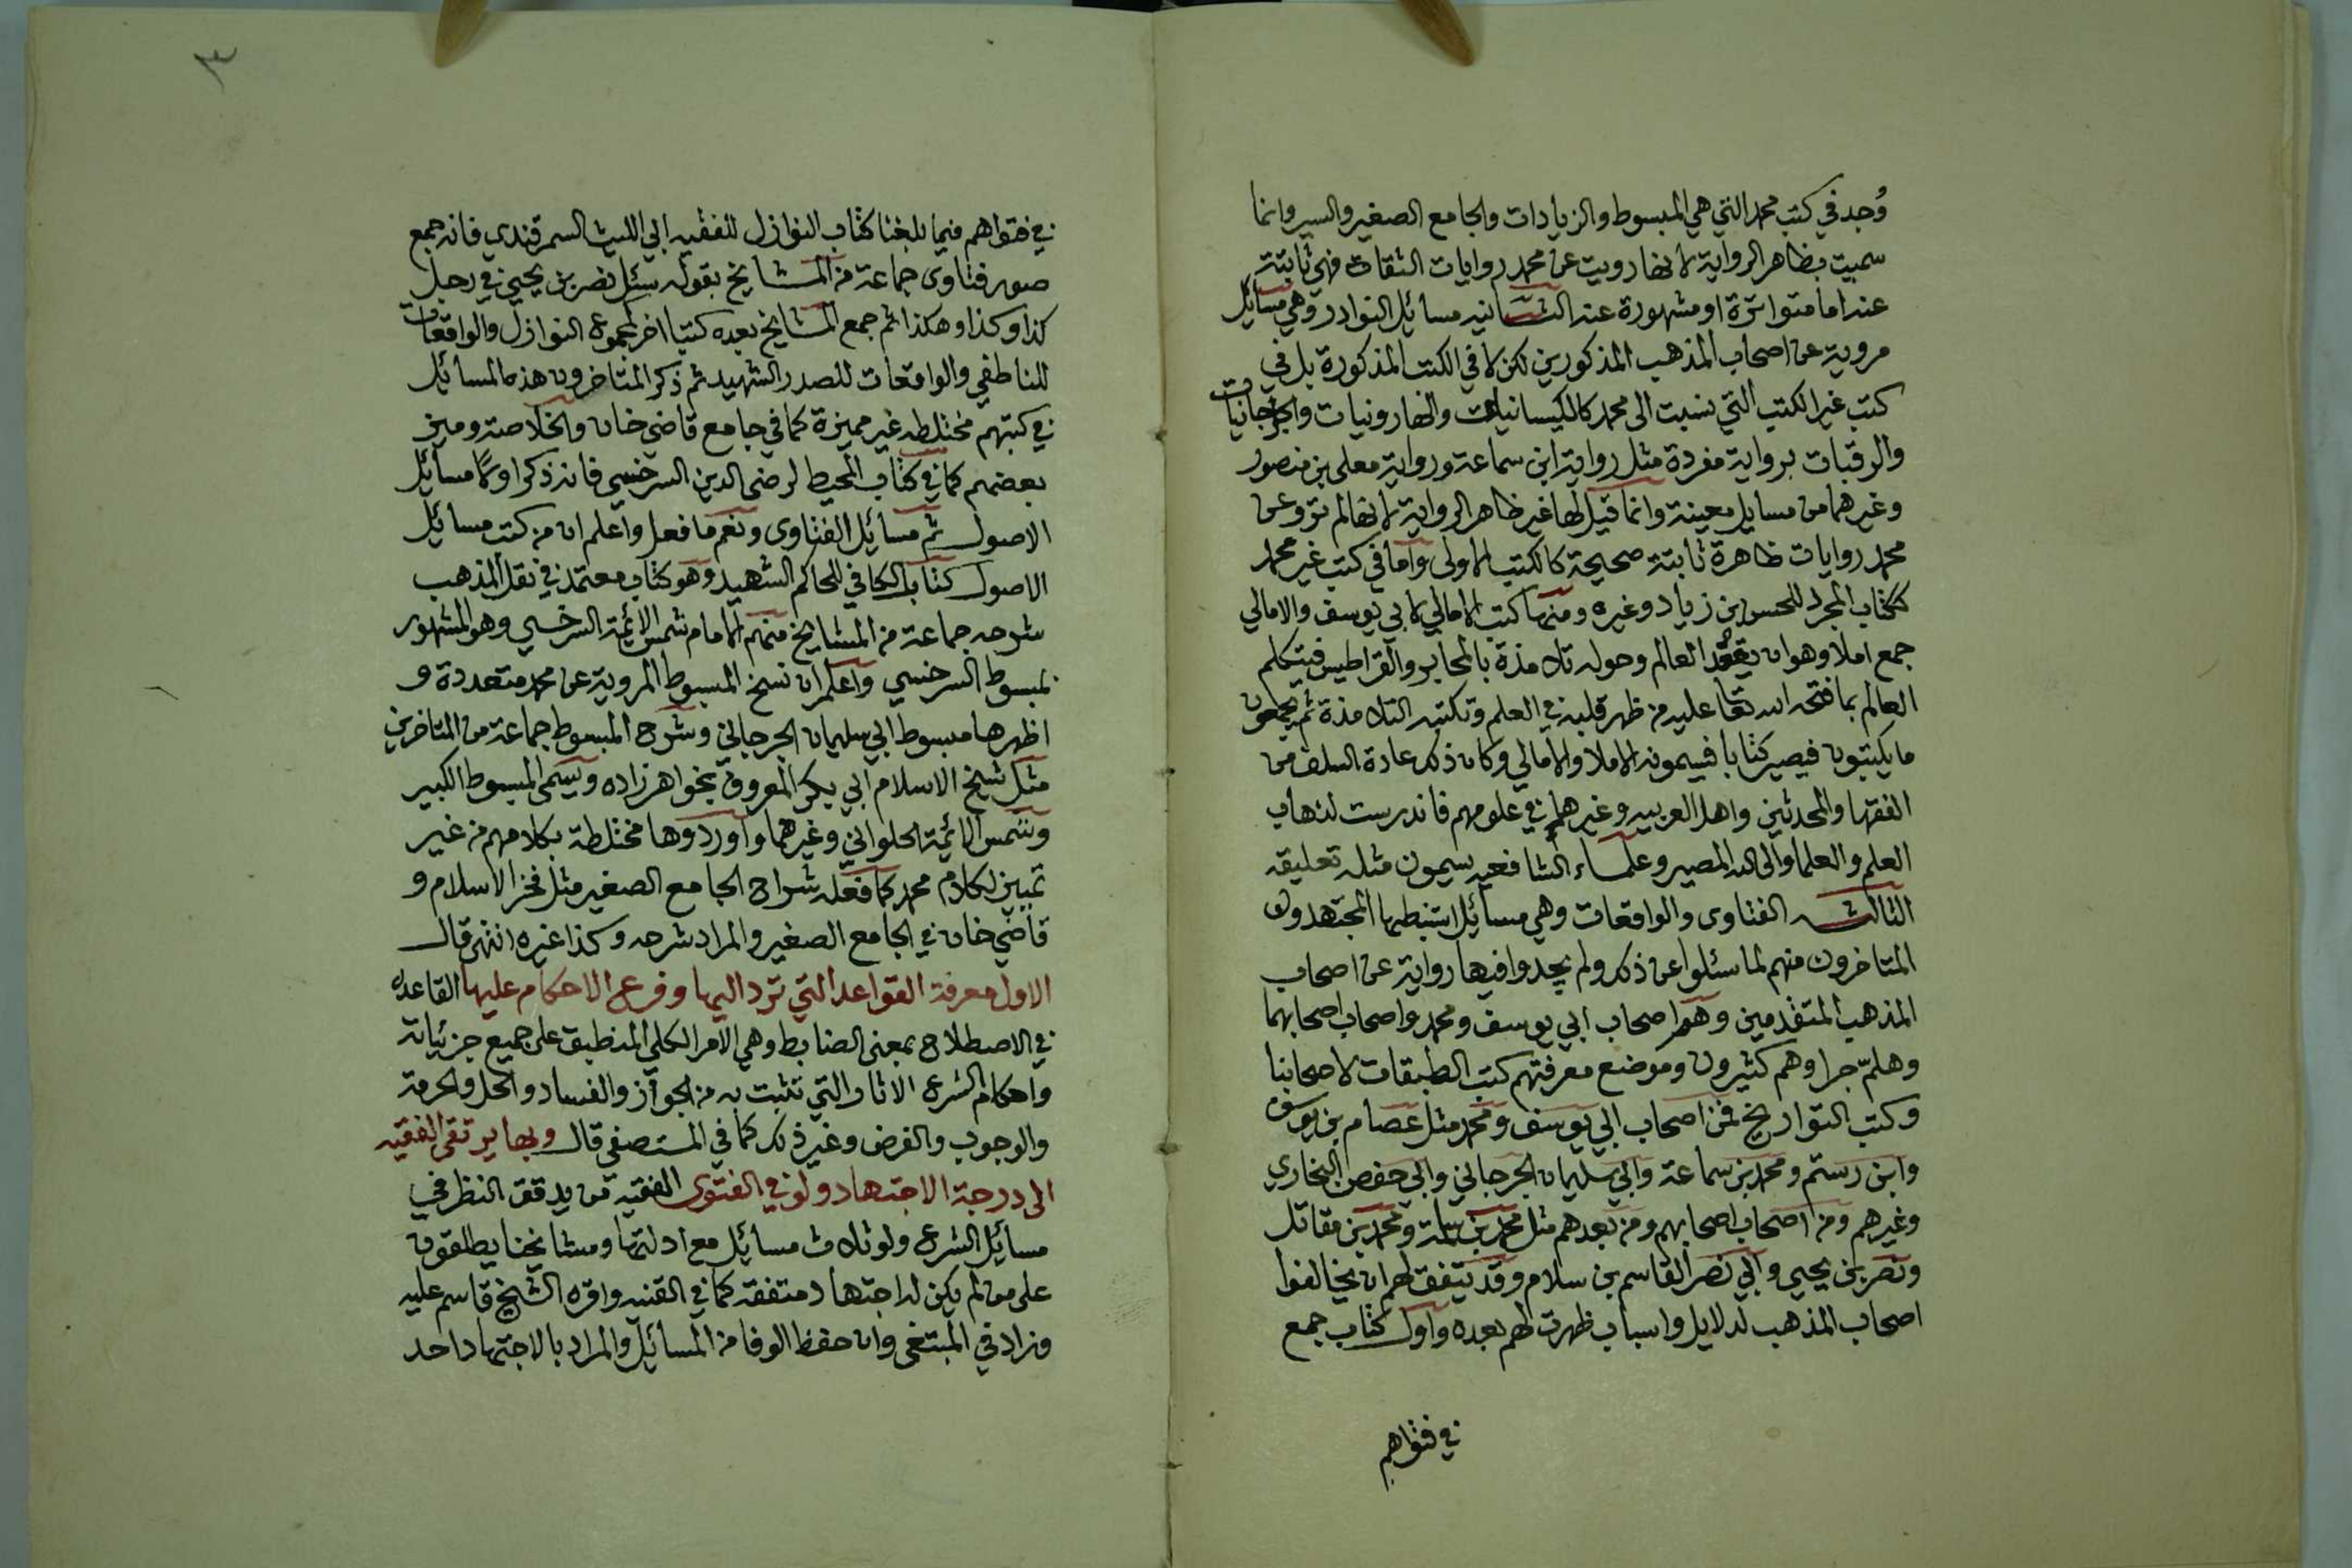 وُجد في كتب محمد التي هي المبسوط والزيادات والجامع الصغير والسير وانما
سميت بظاهر الرواية لانها رويت عن محمد روايات الثقات فهي ثابتة
عنه اما متواترة او مشهورة عنه الثانيه مسائل النوادر وهي مسايل
مروية عن اصحاب المذهب المذكورين لكن لا في الكتب المذكورة بل في
كتب غير الكتب التي نسبت الى محمد كالكيسانيات والهارونيات والجرجانيات
والرقيات برواية مفردة مثل رواية ابن سماعة ورواية معلى بن منصور
وغيرهما من مسايل معينة وانما قيل لها غير ظاهر الرواية لانها لم ترو عن
محمد روايات ظاهرة ثابتة صحيحة كالكتب الاولى واما في كتب غير محمد
ككتاب المجرد للحسن بن زياد وغيره ومنها كتب الامالي لابي يوسف والامالي
جمع املا وهو ان يقعد العالم وحوله تلامذة بالمحابر والقراطيس فيتكلم
العالم بما فتحه الله تعا عليه من ظهر قلبه في العلم وتكتبه التلامذة ثم يجمعون
ما يكتبون فيصير كتابا فيسمونه الاملا والامالي وكان ذلك عادة السلف من
الفقها والمحدثين واهل العربيه وغيرهم في علومهم فاندرست لذهاب
العلم والعلما والى الله المصير وعلماء الشافعيه يسمون مثله تعليقه
الثالث الفتاوى والواقعات وهي مسائل استنبطها المجتهدون
المتاخرون منهم لما سئلوا عن ذلك ولم يجدوا فيها رواية عن اصحاب
المذهب المتقدمين وهم اصحاب ابي يوسف ومحمد واصحاب اصحابهما
وهلمّ جرا وهم كثيرون وموضع معرفتهم كتب الطبقات لاصحابنا
وكتب التواريخ فمن اصحاب ابي يوسف ومحمد مثل عصام بن يوسف
وابن رستم ومحمد بن سماعة وابي سليمان الجرجاني وابي حفص البخاري
وغيرهم ومن اصحاب اصحابهم ومن بعدهم مثل محمد بن سلمة ومحمد بن مقاتل
ونصر بن يحيى وابي نصر القاسم بن سلام وقد يتفق لهم ان يخالفوا
اصحاب المذهب لدلايل واسباب ظهرت لهم بعده واول كتاب جمع
في فتواهم
٣
في فتواهم فيما بلغنا كتاب النوازل للفقيه ابي الليث السمرقندي فانه جمع
صور فتاوى جماعة من المشايخ بقوله سئل نصر بن يحيى في رجل
كذا وكذا وهكذا ثم جمع المشايخ بعده كتبا اخر لمجموع النوازل والواقعات
للناطفي والواقعات للصدر الشهيد ثم ذكر المتاخرون هذه المسائل
في كتبهم مختلطه غير مميزة كما في جامع قاضي خان والخلاصة وميز
بعضهم كما في كتاب المحيط لرضي الدين السرخسي فانه ذكر اولا مسائل
الاصول ثم مسائل الفتاوى ونعم ما فعل واعلم ان من كتب مسائل
الاصول كتاب الكافي للحاكم الشهيد وهو كتاب معتمد في نقل المذهب
شرحه جماعة من المشايخ منهم الامام شمس الائمة السرخسي وهو المشهور
بمبسوط السرخسي واعلم ان نسخ المبسوط المروية عن محمد متعددة و
اظهرها مبسوط ابي سليمان الجرجاني وشرح المبسوط جماعة من المتاخرين
مثل شيخ الاسلام ابي بكر المعروف بخواهر زاده ويسمى المبسوط الكبير
وشمس الائمة الحلواني وغيرهما واوردوها مختلطة بكلامهم من غير
تمييز لكلام محمد كما فعله شراح الجامع الصغير مثل فخر الاسلام و
قاضي خان في الجامع الصغير والمراد شرحه وكذا غيره انتهى قال
الاول معرفة القواعد التي ترد اليها وفرع الاحكام عليها القاعده
في الاصطلاح بمعنى الضابط وهي الامر الكلي المنطبق على جميع جزئياته
واحكام الشرع الاثار التي تثبت به من الجواز والفساد والحل والحرمة
والوجوب والفرض وغير ذلك كما في المستصفى قال وبها يرتقى الفقيه
الى درجة الاجتهاد ولو في الفتوى الفقيه من يدقق النظر في
مسائل الشرع ولو ثلاث مسائل مع ادلتها ومشايخنا يطلقون
على من لم يكن له اجتهاد متفقه كما في القنيه واقره الشيخ قاسم عليه
وزاد في المبتغى وان حفظ الوفا من المسائل والمراد بالاجتهاد احد